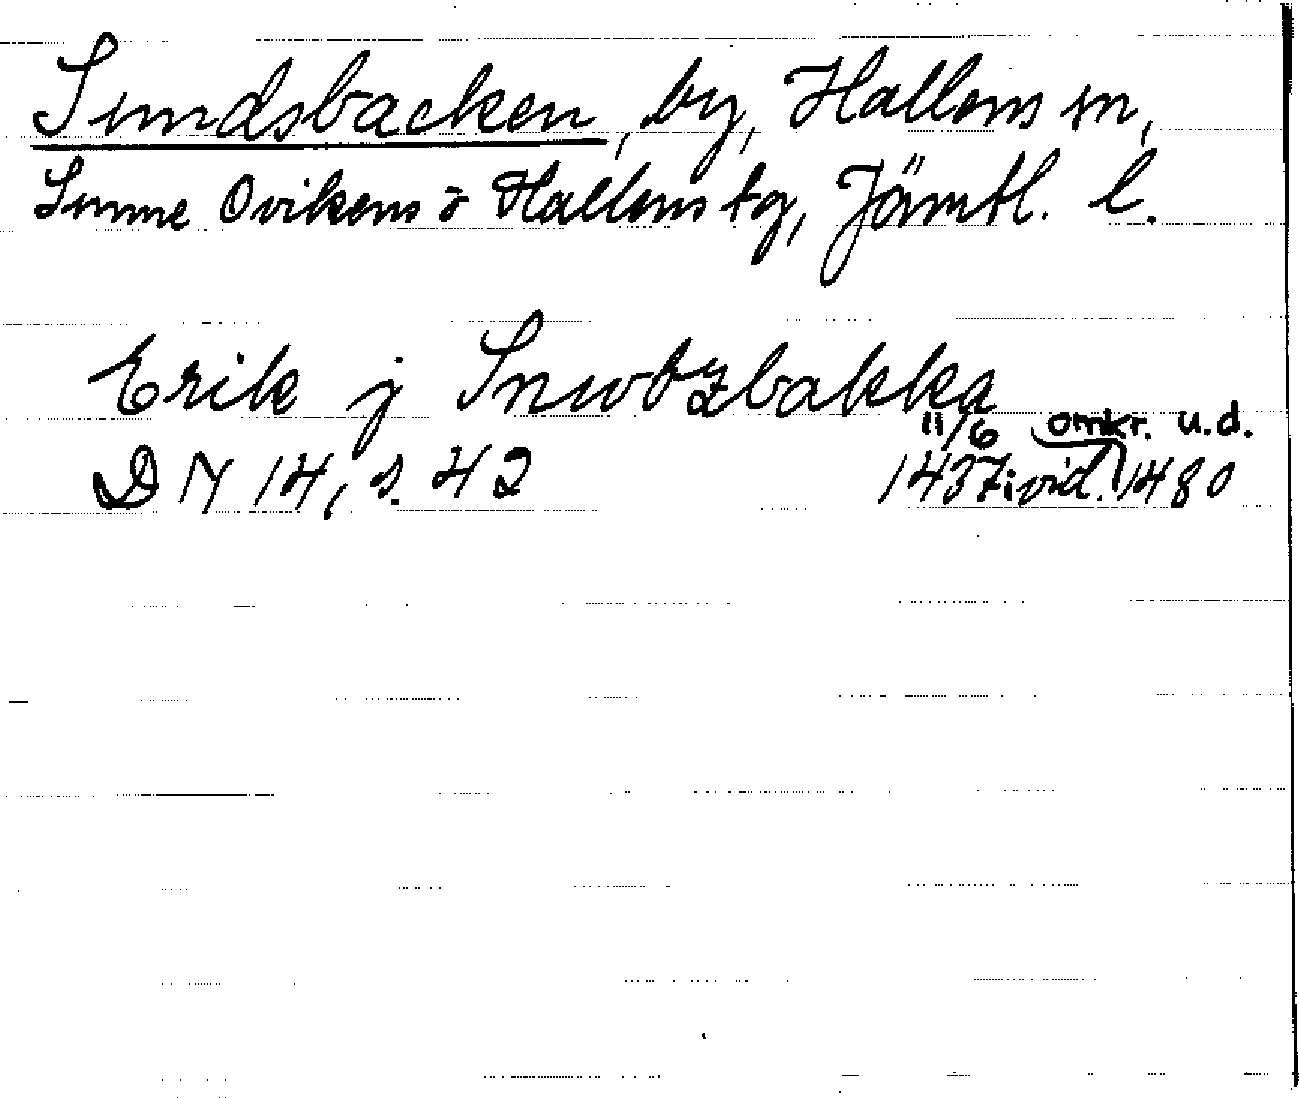 Sundsbacken, by, Hallens sn,
Sunne Ovikens o Hallens tg, Jämtl. l.
Erik j Snwtzbakka
DN 14, s. 42
11/6 omkr. u.d.
1437 i vid. 1480